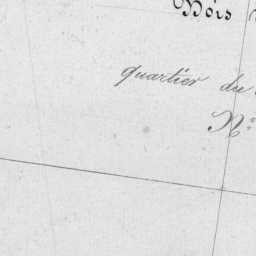 Bois
quartier du
N°